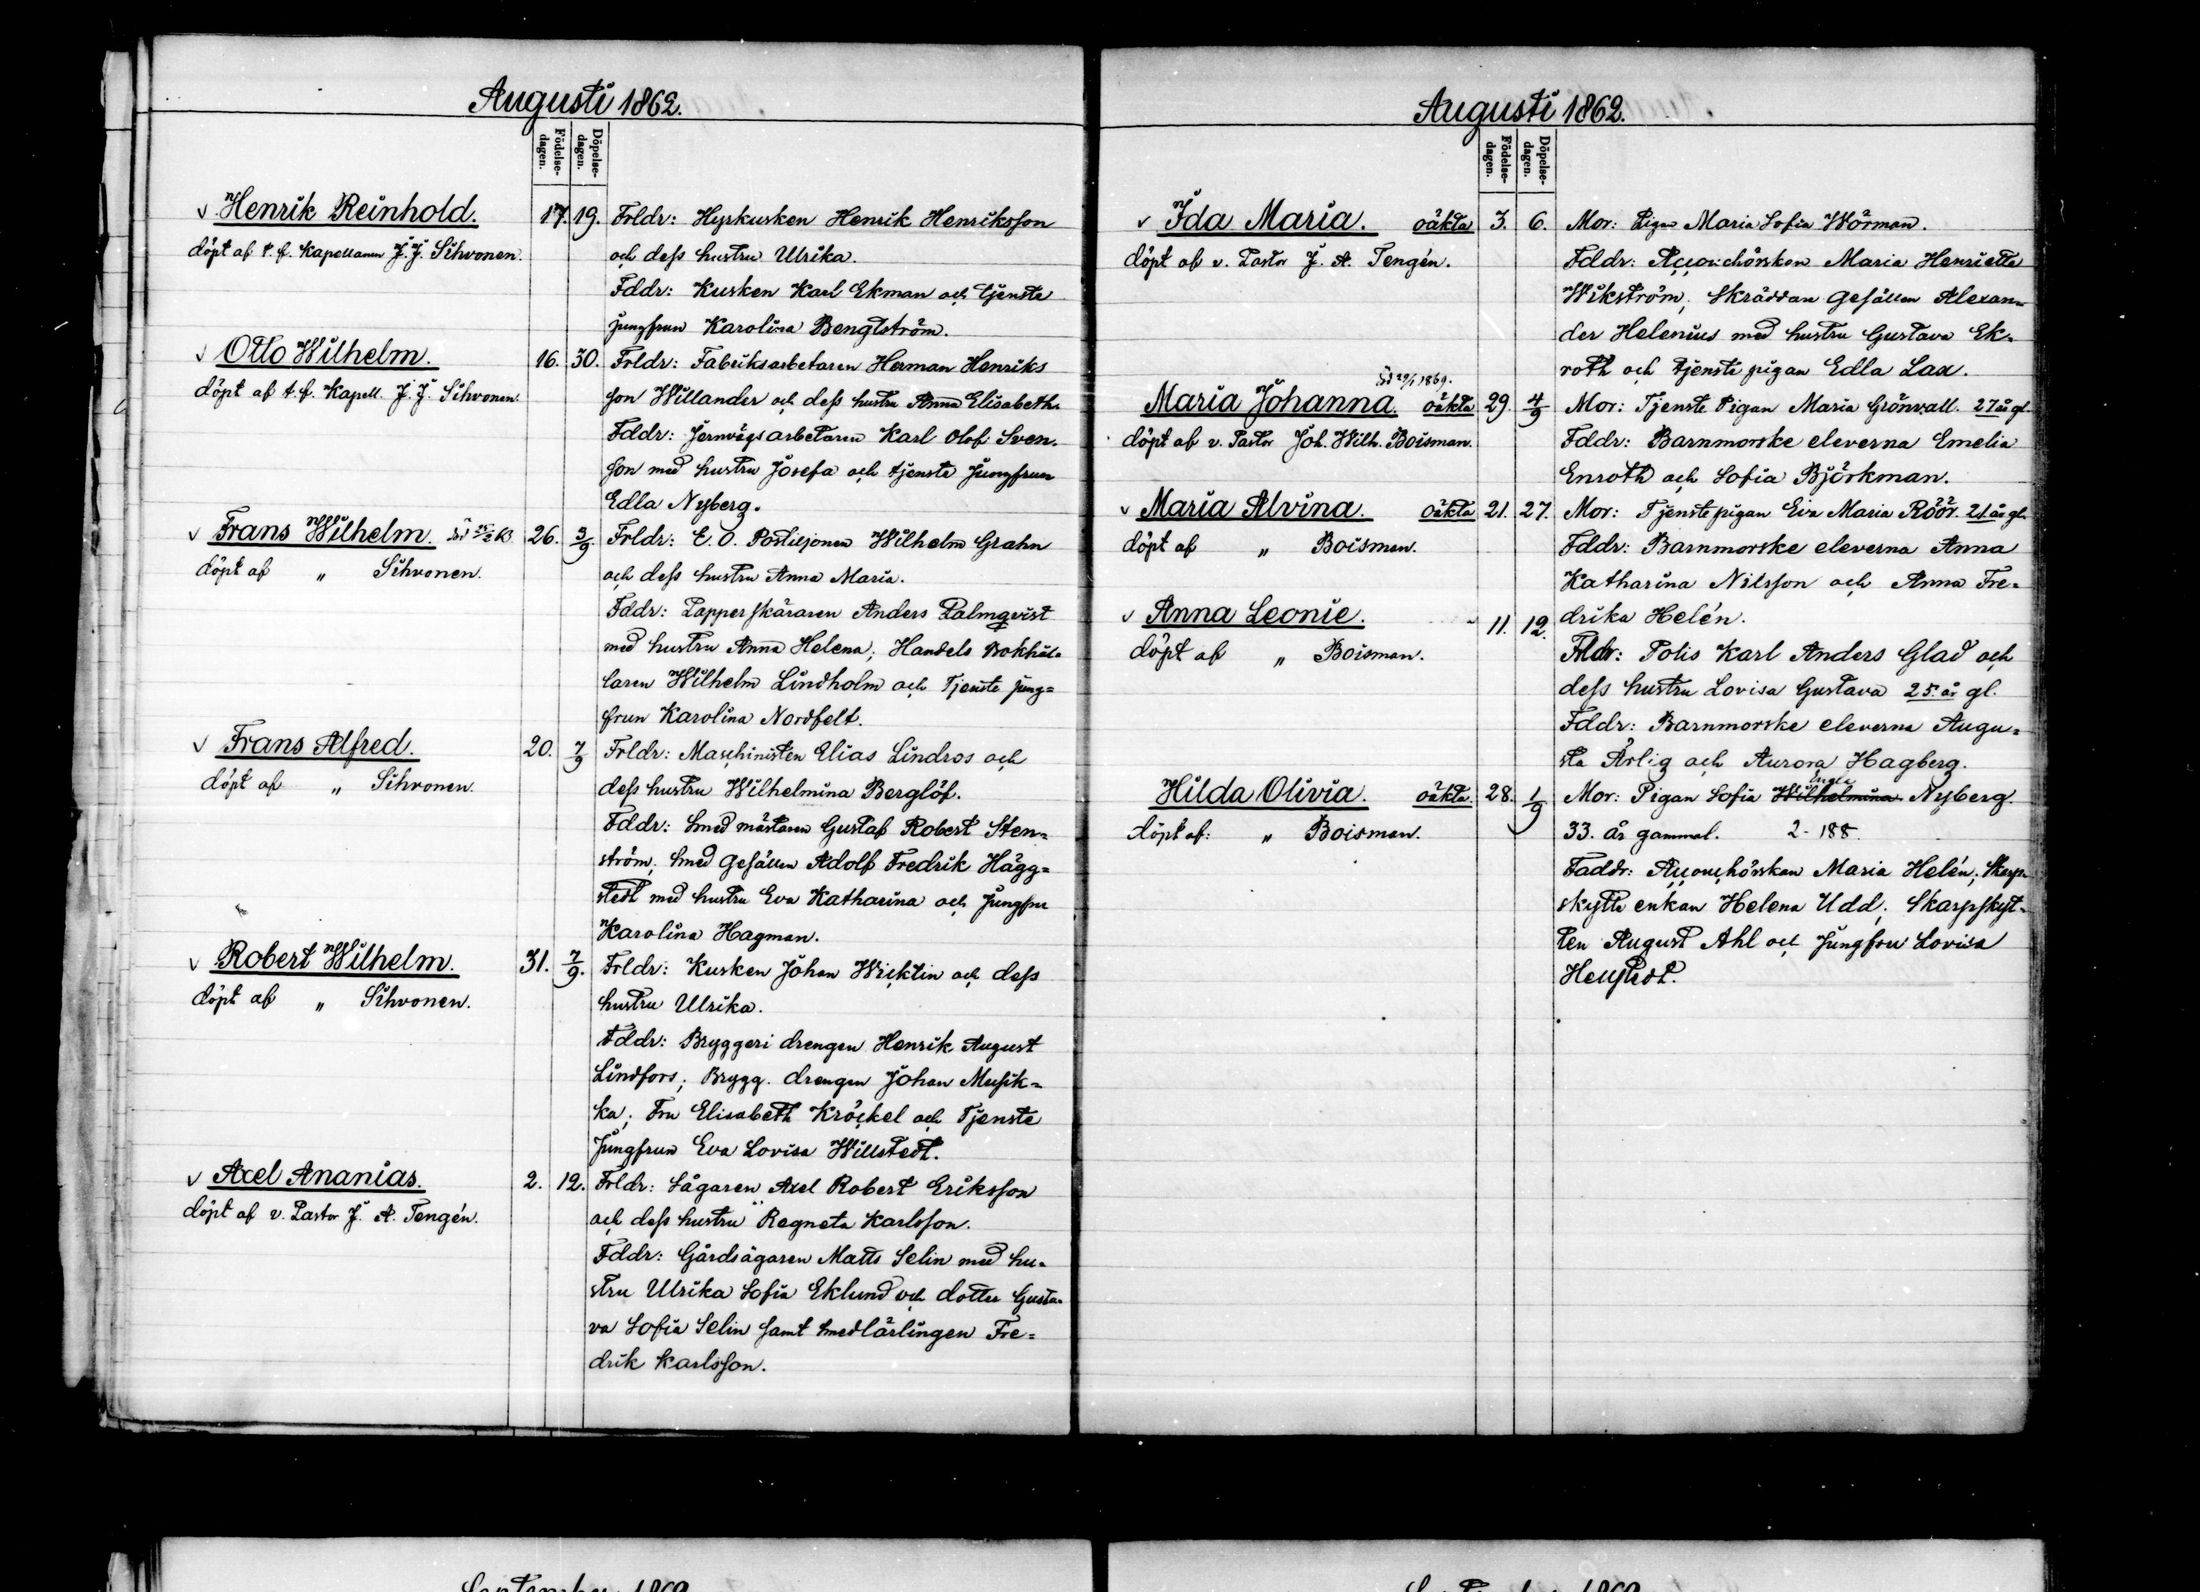 Augusti 1862.
Födelse-dagen.
Döpelse-dagen.
v Henrik Reinhold. 17. 19. Frldr: Hyrkusken Henrik Henriksson
döpt af t. f. Kapellanen J. J. Sihvonen. och dess hustru Ulrika.
Fddr: Kusken Karl Ekman och tjenste
jungfrun Karolina Bengtström.
v Otto Wilhelm. 16. 30. Frldr: Fabriksarbetaren Herman Henriks
döpt af t. f. Kapell. J. J. Sihvonen. son Willander och dess hustru Anna Elisabeth.
Fddr: Jernvägsarbetaren Karl Olof Sven-
son med hustru Josefa och tjenste Jungfrun
Edla Nyberg.
v Frans Wilhelm. 26. 3/9 Frldr: E. O. Postiljonen Wilhelm Grahn
döpt af " Sihvonen. och dess hustru Anna Maria.
Fddr: Papperskäraren Anders Palmqvist
med hustru Anna Helena; Handels Bokhål-
laren Wilhelm Lindholm och Tjenste jung=
frun Karolina Nordfelt.
v Frans Alfred. 20. 7/9 Frldr: Maschinisten Elias Lindros och
döpt af " Sihvonen. dess hustru Wilhelmina Berglöf.
Fddr: Smed mästaren Gustaf Robert Sten=
ström; Smed Gesällen Adolf Fredrik Hägg=
stedt med hustru Eva Katharina och Jungfru
Karolina Hagman.
v Robert Wilhelm. 31. 7/9. Frldr: Kusken Johan Wicktin och dess
döpt af " Sihvonen. hustru Ulrika.
Fddr: Bryggeri drengen Henrik August
Lindfors; Brygg. drengen Johan Musik=
ka; Fru Elisabeth Kröckel och Tjenste
Jungfrun Eva Lovisa Willstedt.
v Axel Ananias. 2. 12. Frldr: Sågaren Axel Robert Eriksson
döpt af v. Pastor J. A. Tengén. och dess hustru Regneta Karlsson.
Fddr: Gårdsägaren Matts Selin med hu-
stru Ulrika Sofia Eklund och dotter Gusta-
va Sofia Selin samt Smedlärlingen Fre=
drik Karlsson.
Augusti 1862.
Födelse-dagen.
Döpelse-dagen.
v Ida Maria. oäkta 3. 6. Mor: Pigan Maria Sofia Wörman.
döpt af v. Pastor J. A. Tengén. Fddr: Accouchörskan Maria Henrietta
Wikström; Skräddare Gesällen Alexan-
der Helenius med hustru Gustava Ek-
roth och tjenste pigan Edla Lax.
1869.
Maria Johanna. oäkta 29. 4/9 Mor: Tjenste Pigan Maria Grönvall. 27 år gl.
döpt af v. Pastor Joh. Wilh. Boisman. Fddr: Barnmorske eleverna Emelia
Enroth och Sofia Björkman.
v Maria Alvina. oäkta 21. 27. Mor: Tjenstepigan Eva Maria Röör. 21 år gl.
döpt af " Boisman. Fddr: Barnmorske eleverna Anna
Katharina Nilsson och Anna Fre=
drika Helén.
v Anna Leonie. 11. 12.
döpt af " Boisman. Frldr: Polis Karl Anders Glad och
dess hustru Lovisa Gustava 25. år gl.
Fddr: Barnmorske eleverna Augu-
sta Ärlig och Aurora Hagberg.
Engla
Hilda Olivia. oäkta. 28. 1/9 Mor: Pigan Sofia Wilhelmina Nyberg.
döpt af: " Boisman. 33. år gammal. 2-188
Faddr: Accouchörskan Maria Helén; Skarp-
skytte enkan Helena Udd; Skarpskyt-
ten August Ahl och Jungfru Lovisa
September 1862